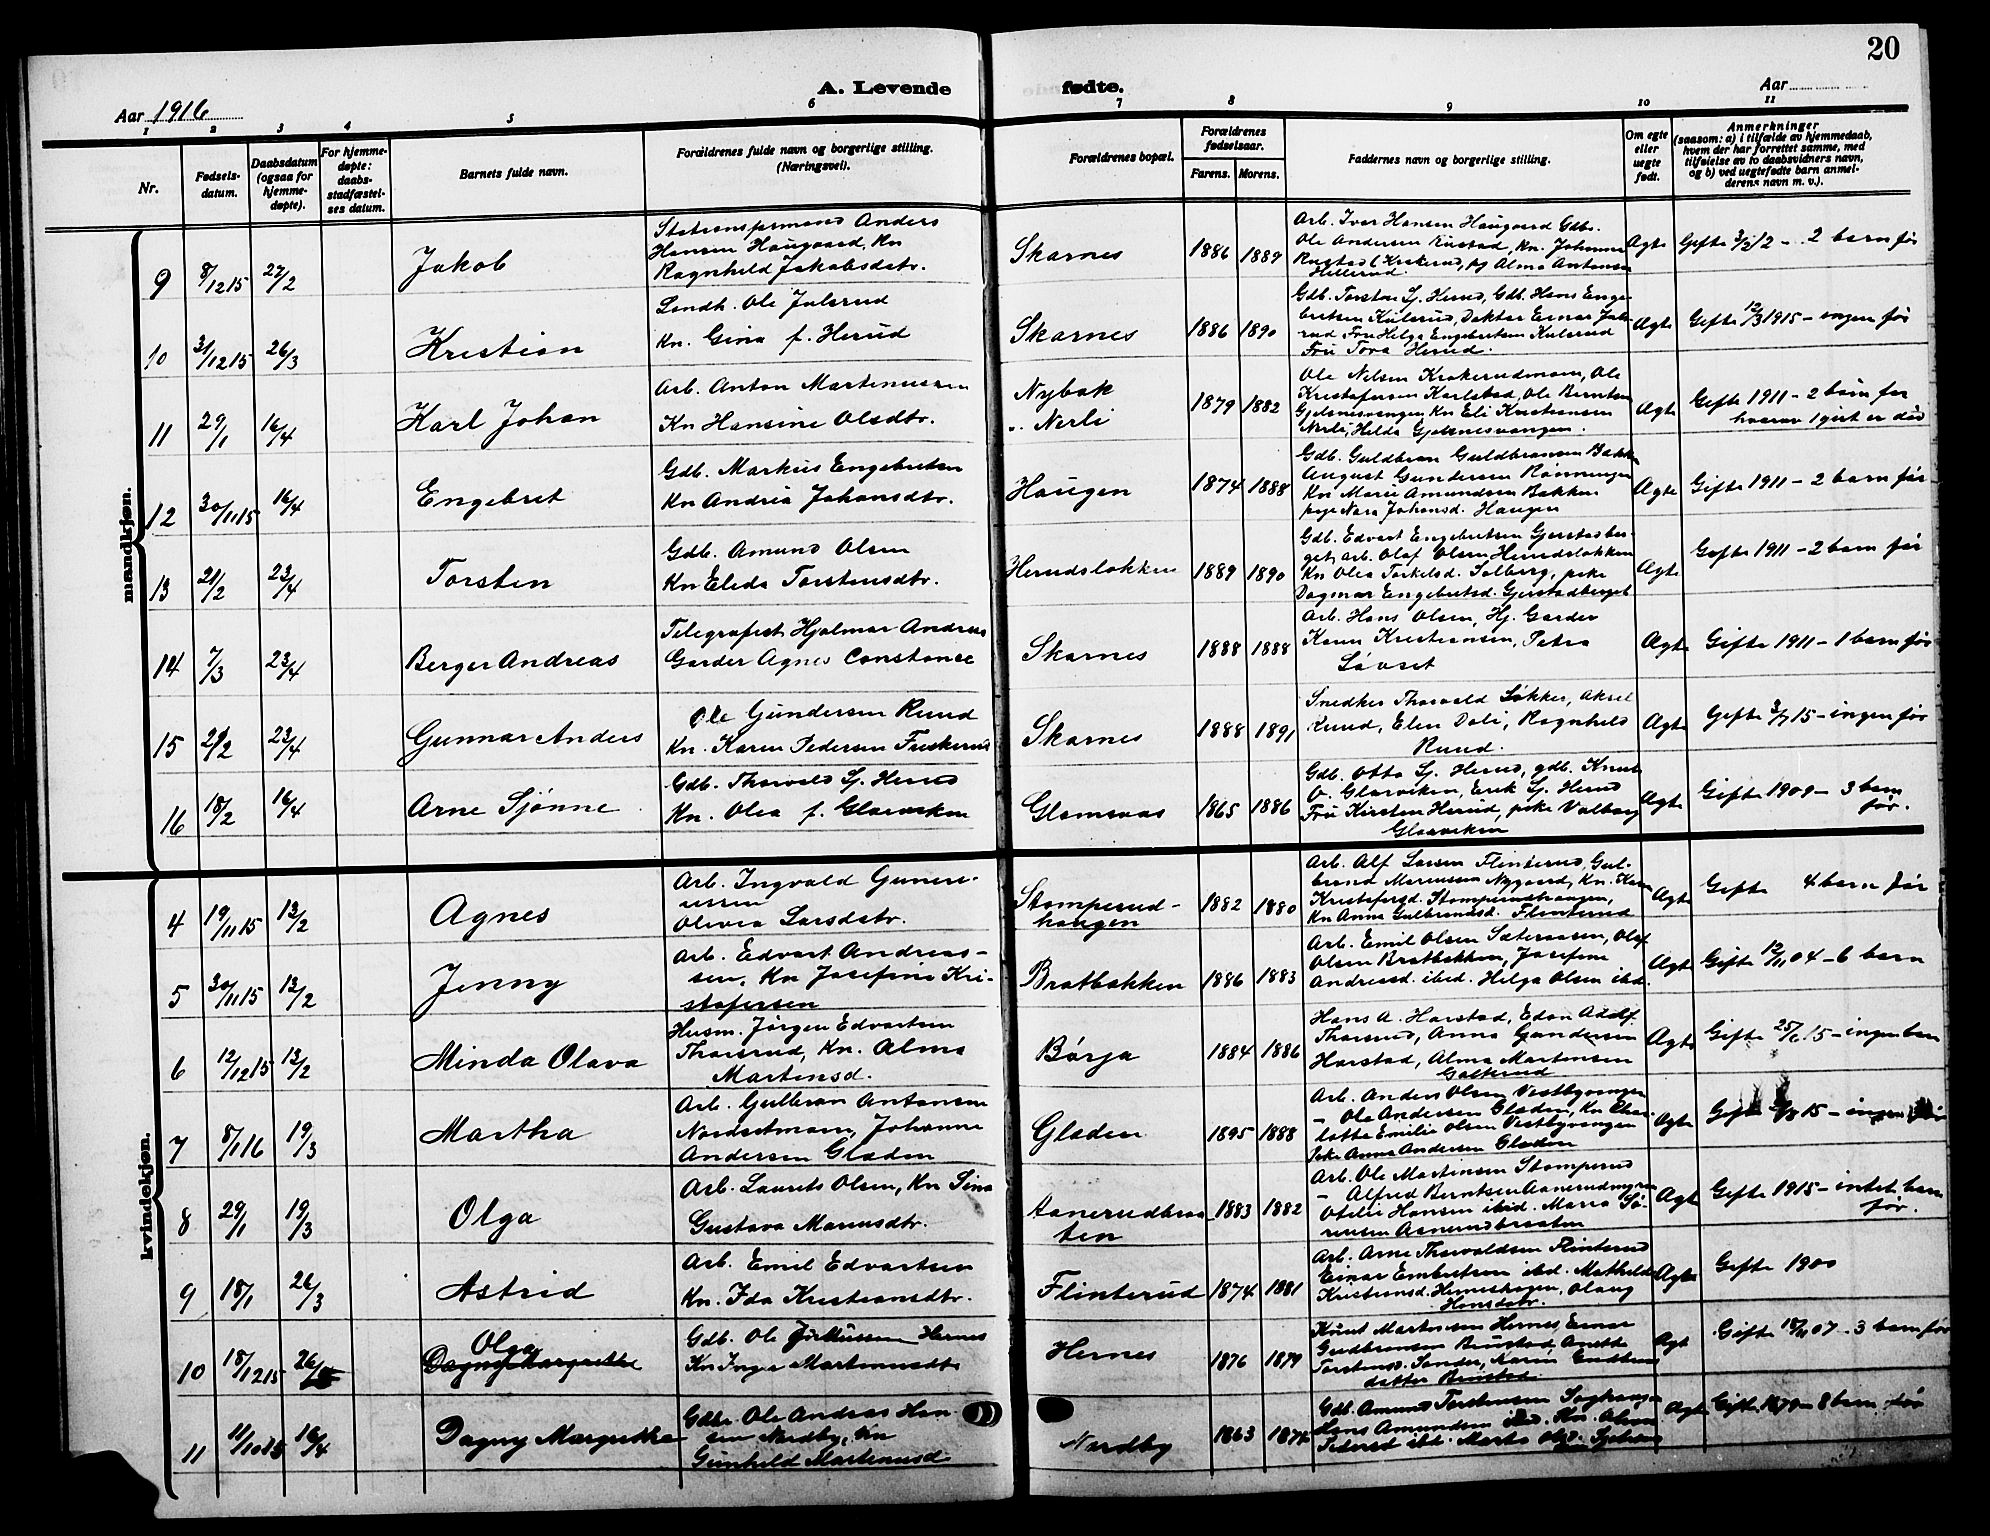 20
A. Levende fødte.
Aar 1916
Aar
1 2 3 4 5 6 7 8 9 10 11
Nr.
Fødsels-
datum.
Daabsdatum
(ogsaa for
hjemme-
døpte).
For hjemme-
døpte:
daabs-
stadfæstel-
ses datum.
Barnets fulde navn.
Forældrenes fulde navn og borgerlige stilling.
(Næringsvei).
Forældrenes bopæl.
Forældrenes
fødselsaar.
Farens. Morens.
Faddernes navn og borgerlige stilling.
Om egte
eller
uegte
født.
Anmerkninger
(saasom: a) i tilfælde av hjemmedaab,
hvem der har forrettet samme, med
tilføielse av to daabsvidners navn,
og b) ved uegtefødte barn anmel-
derens navn m. v.).
mandkjøn.
9 8/12 15 27/2 Jakob
Stationsformand Anders
Hansen Haugaard, Kn
Ragnhild Jakobsdtr.
Skarnes 1886 1889
Arb. Ivar Hansen Haugaard Gdb.
Ole Andersen Rustad, Kn. Johanne
Alma Antonsen
Hellerud.
Ægte Gifte 3/2 12 - 2 barn før
10 31/12 15 26/3 Kristian
Landh. Ole Julsrud
Kn. Gina f. Herud
Skarnes 1886 1890
Gdb. Torsten Sj. Herud, Gdb. Hans Enge-
bretsen Kulsrud, Doktor Einar Juls-
rud Fru Helga Engebretsen Kulsrud
Fru Tora Herud.
Ægte Gifte 12/3 1915 - ingen før
11 29/1 16/4 Karl Johan
Arb. Anton Martinussen
Kn Hansine Olsdtr.
Nybak
Nerli
1879 1882
Ole Nilsen Krokerudmoen, Ole
Kristofersen Karlstad, Ole Berntsen
Gjølsnesvangen Kn Eli Kristiansen
Nerli, Hilda Gjølsnesvangen.
Ægte Gifte 1911 - 2 barn før
hvorav 1 gut er død
12 30/11 15 16/4 Engebret
Gdb. Markus Engebretsen
Kn Andrea Johansdtr.
Haugen 1874 1888
Gdb. Guldbran Guldbransen Bakken
August Gundersen Rønningen
Kn Marie Amundsen Bakken
pige Nora Johansd. Haugen
Ægte Gifte 1911 - 2 barn før
13 21/2 23/4 Torsten
Gdb. Amund Olsen
Kn Elida Torstensdtr.
Herudsløkken 1889 1890
Gdb. Edvart Engebretsen Gjerstadber-
get, Arb. Olaf Olsen Herudsløkken
Kn Olea Torkelsd. Solberg, pike
Dagmar Engebretsd. Gjerstadberget
Ægte Gifte 1911 - 2 barn før
14 7/3 23/4 Berger Andreas
Telegrafist Hjalmar Andreas
Garder Agnes Constance
Skarnes 1888 1888
Arb. Hans Olsen, Hj. Garder
Karen Kristiansen, Petra
Løvset
Ægte Gifte 1911 - 1 barn før
15 29/2 23/4 Gunnar Anders
Ole Gundersen Ruud
Kn. Karen Pedersen Fuskerud
Skarnes 1888 1891
Snedker Thorvald Løkker, Aksel
Ruud, Elen Dali, Ragnhild
Ruud.
Ægte Gifte 3/7 15 - ingen før
16 18/2 16/4 Arne Sjønne
Gdb. Thorvald Sj. Herud
Kn. Olea f. Glorviken
Glomsaas 1865 1886
Gdb. Otto Sj. Herud, gdb. Knut
O. Glorviken, Erik Sj. Herud
Fru Kirsten Herud, pike Valborg
Glorviken
Ægte Gifte 1909 - 3 barn
før.
kvindekjøn.
4 19/11 15 13/2 Agnes
Arb. Ingvald Guneri-
ussen
Olivia Larsdatr.
Stomperud-
haugen
1882 1880
Arb. Alf Larsen Flinterud, Gul-
brand Mariussen Nygaard, Kn. Karen
Kristofersd. Stomperudhaugen,
Kn Anna Gulbrandsd. Flinterud
Ægte Gifte 4 barn før
5 30/11 15 13/2 Jenny
Arb. Edvart Andreas-
sen, Kn Josefine Kri-
stofersen
Bratbakken 1886 1883
Arb. Emil Olsen Sæteraasen, Olaf
Olsen Bratbakken, Josefine
Andreasd. ibid. Helga Olsen ibid.
Ægte Gifte 12/11 04 - 6 barn
6 12/12 15 13/2 Minda Olava
Husm. Jørgen Edvartsen
Thorsrud, Kn. Alma
Martensd.
Børja 1884 1886
Hans A. Harstad, Edon Adolf
Thorsrud, Anna Gundersen
Harstad, Alma Martensen
Galterud
Ægte Gifte 25/6 15 - ingen barn
7 8/1 16 19/3 Martha
Arb. Gulbran Antonsen
Nordsetmoen, Johanne
Andersen Gladen
Gladen 1895 1888
Arb. Anders Olsen Vestbyvangen
- Ole Andersen Gladen, Kn Char-
lotte Emilie Olsen Vestbyvangen
Pike Anna Andersen Gladen
Ægte Gifte 15 - ingen før
8 29/1 19/3 Olga
Arb. Laurits Olsen, Kn Sina
Gustava Mariusdtr.
Aanerudbraa-
ten
1883 1882
Arb. Ole Martinsen Stomperud
- Alfred Berntsen Aanerudmyren
Otelie Hansen ibid. Maria Sø-
rensen Aanerudbraaten
Ægte Gifte 1915 - intet barn
før.
9 18/1 26/3 Astrid
Arb. Emil Edvartsen
Kn. Ida Kristiansdtr.
Flinterud 1874 1881
Arb. Arne Thorvaldsen Flinterud
Einar Embretsen ibid. Mathilde
Kristiansd. Herneshagen, Olaug
Hansdtr.
Ægte Gifte 1900
10 18/12 15 26/3 Olga
Dagny Margrethe
Gdb. Ole Hernes
Kn Inga Martinusdtr
Hernes 1876 1879
Knut Martinsen Hernes, Einar
Gudbransen Brustad, Anette
Torstensd. Sander, Karen Knuts-
datter Brustad.
Ægt Gifte 18/11 07 - 3 barn før
11 11/10 15 16/4 Dagny Margrethe
Gdb. Ole Andreas Han-
sen Nordby, Kn
Gunhild Martinusd.
Nordby 1863 1874
Gdb. Amund Torstensen
Hans Amundsen ibid. Kn. Olava
Pedersd ibid. Marta
Ægte Gifte - 8 barn før